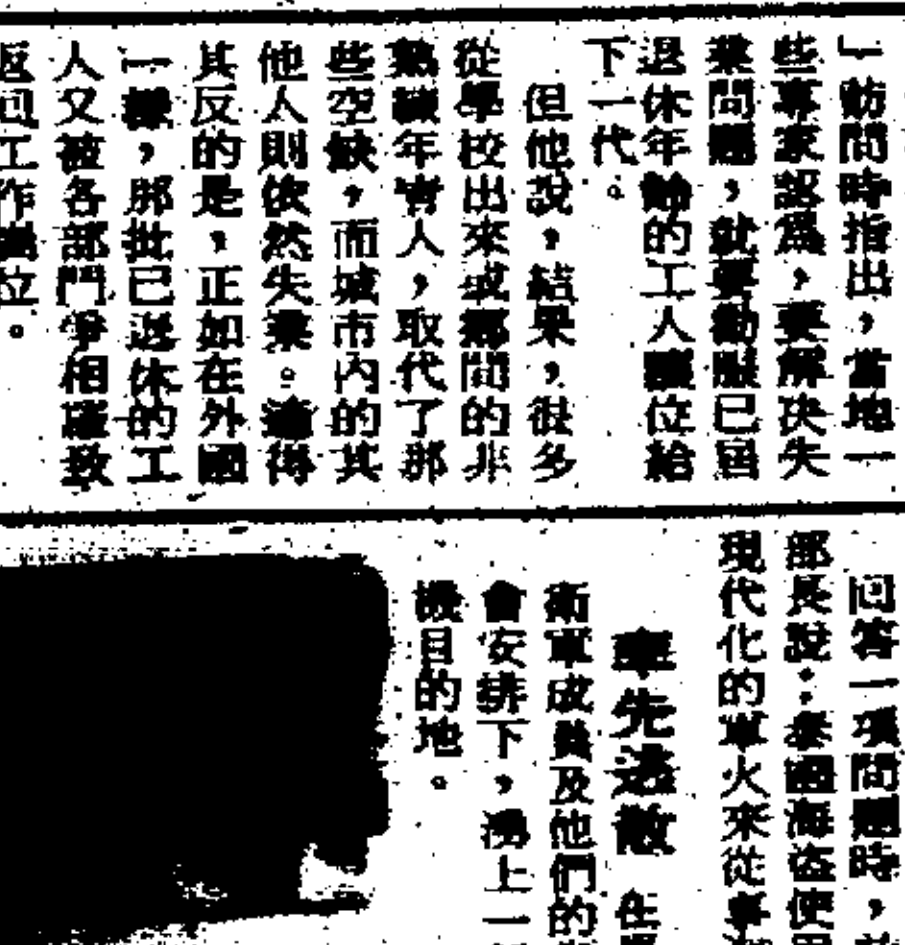 」訪問時指出，當地一
些專家認爲，要解决失
業問題，就要勸服已屆
退休年齡的工人讓位給
下一代。
但他說，結果，很多
從學校出來或鄉間的非
熟練年靑人，取代了那
些空缺，而城市內的其
他人則依然失業。適得
其反的是，正如在外國
一樣，那批已退休的工
人又被各部門爭相羅致
返回工作崗位。
回答一項問題時，
部長說：泰國海盜使用
現代化的軍火來從事
率先逃散 在
衞軍成員及他們的
會安排下，湧上一
機目的地。